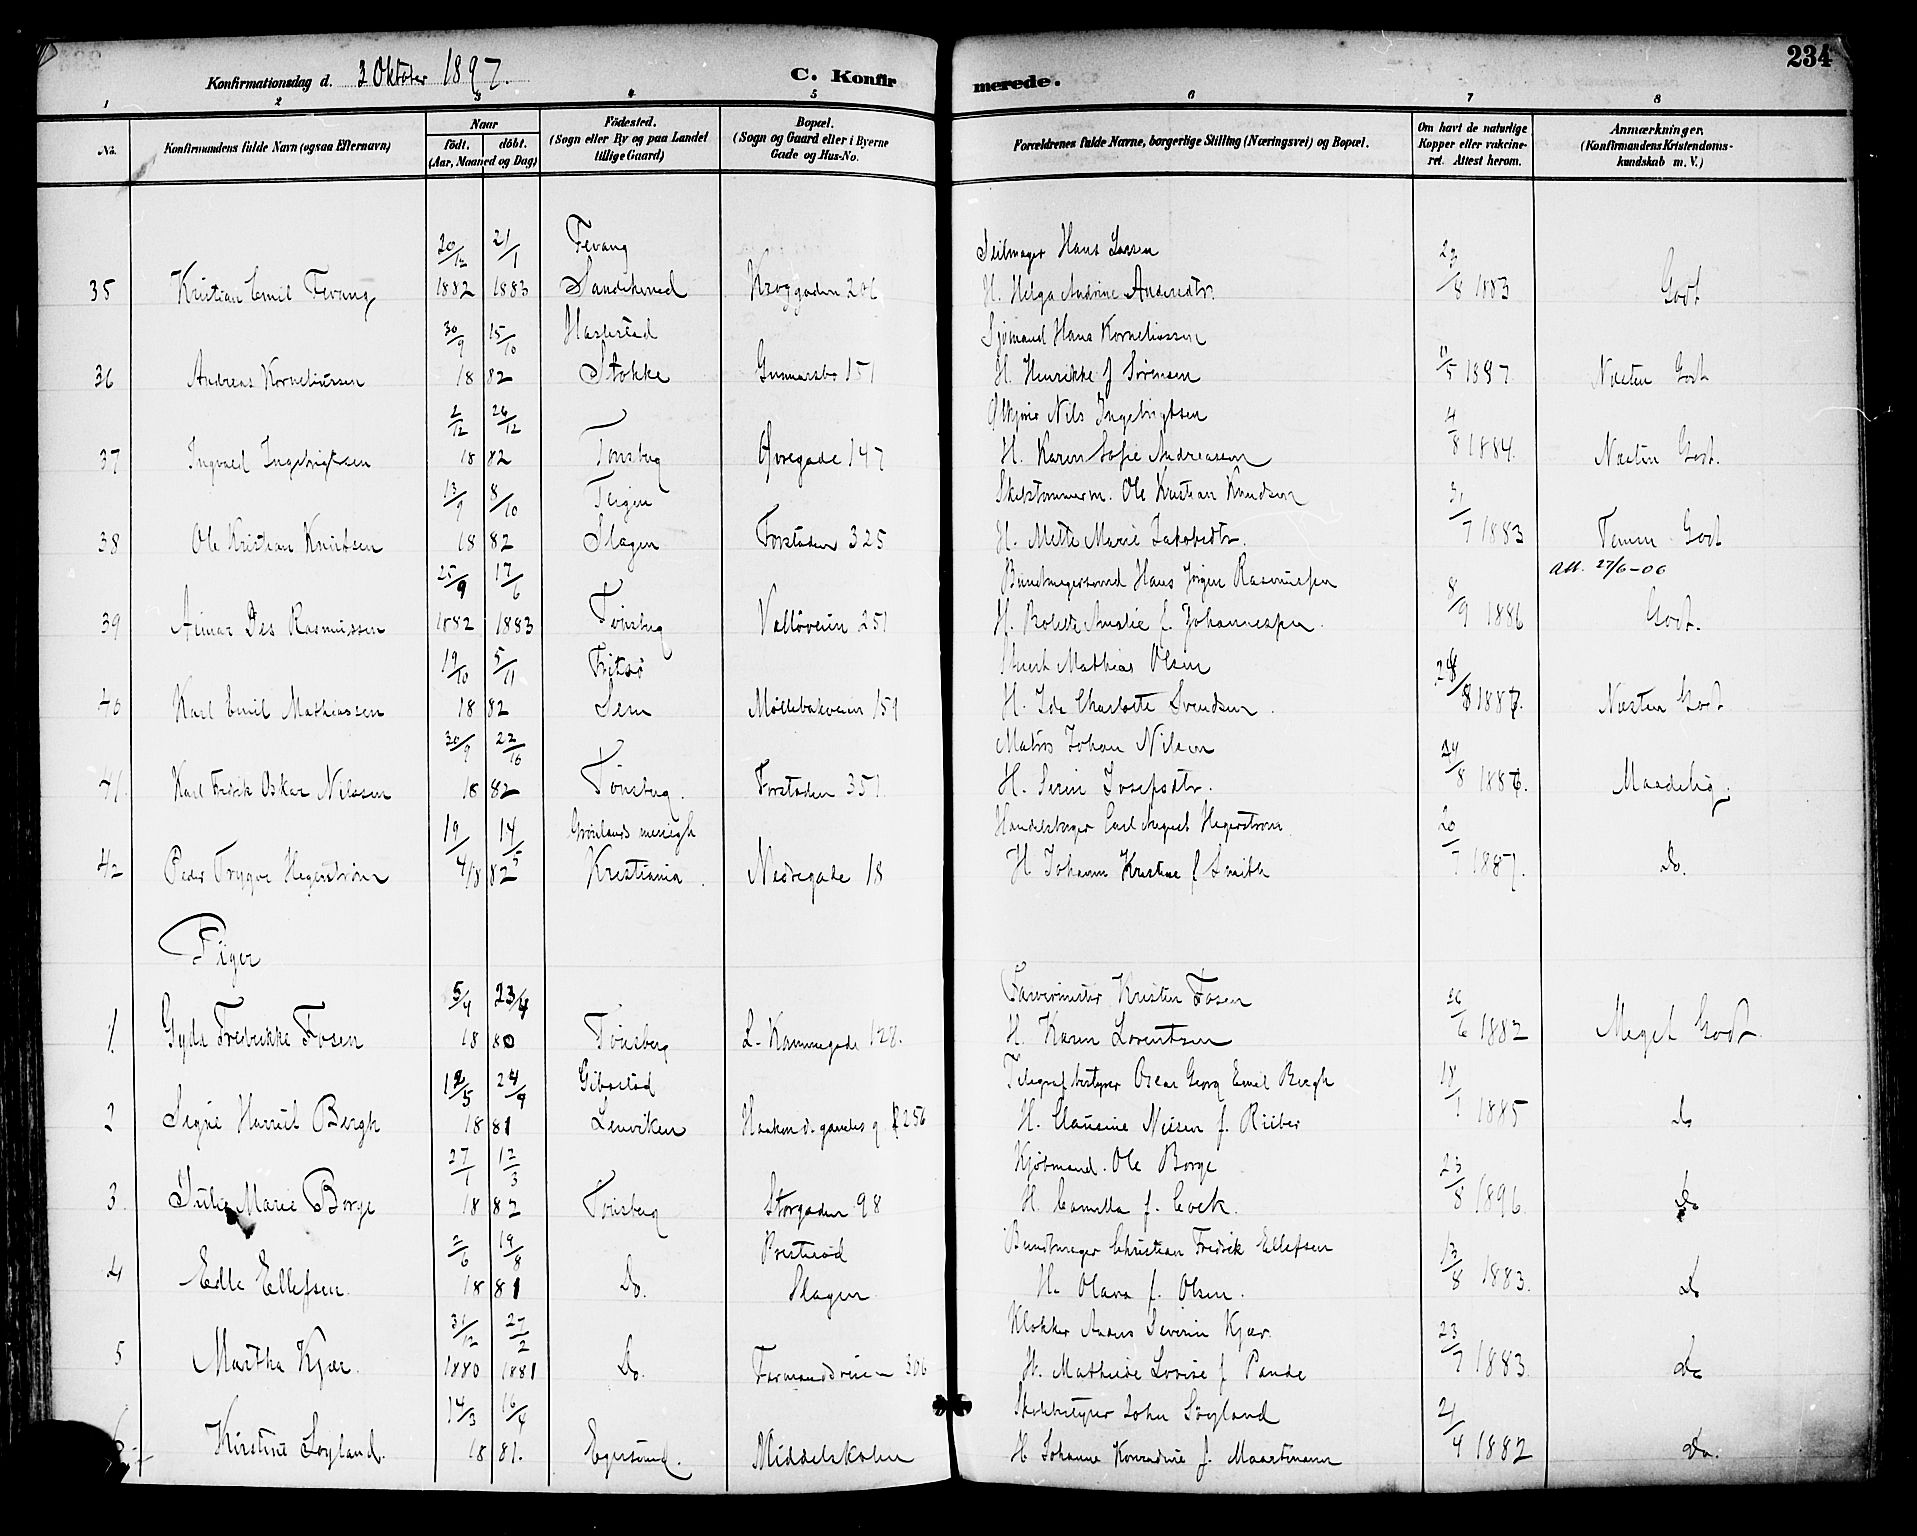 234
Konfirmationsdag d. 3 Oktober 1897.
C. Konfirmerede.
1 2 3 4 5 6 7 8
No. Konfirmandens fulde Navn (ogsaa Efternavn) Naar født. døbt. (Aar, Maaned og Dag) Fødested. (Sogn eller By og paa Landet tillige Gaard) Bopæl. (Sogn og Gaard eller i Byerne Gade og Hus-No. Forældrenes fulde Navne, borgerlige Stilling (Næringsvei) og Bopæl. Om havt de naturlige Kopper eller vakcineret. Attest herom. Anmærkninger. (Konfirmandens Kristendomskundskab m. V.)
20/12 21/1 Fevang Seilmager Hans 23/8
35 Kristian Emil Fevang 1882 1883 Sandeherred 206 H. Helga Andrine Andersdtr. 1883 Godt
30/9 15/10 Sjømand Hans Korneliussen 11/5
36 Andreas Korneliussen 18 82 Stokke Gunnarsbø 151 H. Henrikke f Sørensen 1887 Næsten Godt
2/12 26/12 Nils Ingebrigtsen 4/8
37 Ingvald Ingebrigtsen 18 82 Tønsberg Øvregade 147 H. Karen Sofie Andreassen 1884. Næsten Godt.
13/9 8/10 Teigen Skibstømmerm. Ole Kristian Knudsen 31/7
38 Ole Kristian Knutsen 18 82 Slagen Forstaden 325 H. Mette Marie Jakobsdtr. 1883 Temm. Godt
Att. 27/6-06
25/9 17/6 Buntmagersvend Hans Jørgen Rasmussen 8/9
39 Rasmussen 1882 1883 Tønsberg Valløveien 251 H. Bolette Amalie f. Johannessen. 1886 Godt.
19/10 5/11 Mathias Olsen
40 Karl Emil Mathiassen 18 82 Sem Møllebakveien 159 H. Ida Charlotte Svendsen. 1887. Næsten Godt
30/9 22/10 Matros Johan Nilsen 24/8
41. Karl Fredrik Oskar Nilssen 18 82 Tønsberg. Forstaden 351. H. Serine Josefsdtr. 1886. Maadelig.
19/4 14/5 Grønlands menigh Carl August Hegerstrøm 20/7
42 Peder Trygve Hegerstrøm 18 82 Kristiania. Nedregade 18 H Johanne Kristine f Smith 1887. Do.
Piger
5/4 23/4 Farvermester Kristen Fosen 26/6
1. Gyda Fredrikke Fosen 18 80 Tønsberg L. Kammegade 128. H. Karen Lorentzen 1882 Meget Godt
12/5 24/9 Gibostad Telegrafbestyrer Oscar Georg Emil Bergh 18/1
2 Signe Harriet Bergh 18 81 Lenviken Haakon d. gamles g 256 H. Clausine Nilsen f. Rieber 1885 Do
27/1 12/3 Kjøbmand. Ole Borge 23/8
3. Julie Marie Borge 18 82 Tønsberg Storgaden 98 H. Camilla f. Cock. 1896 Do
2/6 19/8 Presterød Buntmager Christian Fredrik Ellefsen 13/8
4 Edle Ellefsen. 18 81 Do. Slagen H. Olava f. Olsen. 1883. Do
31/12 27/2 Klokker Anders Severin Kjær. 23/7
5 Martha Kjær. 1880 1881 Do. Farmandsveien 306 H. Mathilde Lovise f Paude 1883. Do
14/3 16/4 Skolebestyrer John Søyland 21/4
6. Kirstine Søyland. 18 81. Egersund. Middelskolen H Johanne Konradine f. Maartmann 1882 Do.